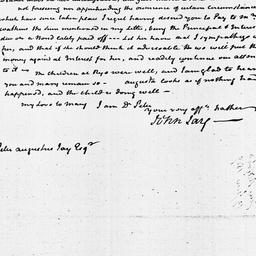 not foreseeing nor apprehending the occurrence of certain circumstances
which have since taken place I regret having desired you to Pay to Mrs
Watkins the sum mentioned in my letter, being the Principal & Interest
due on a Bond lately paid off --- Let her have and I sympathise with
her, and that if she should think it adviseable He we will put the
money again at Interest for her, and readily continue our atten
to it -- The children at Rye were well, and I am glad to hear
you and Mary remain so -- Augusta looks as if nothing had
happened, and the child is doing well --
my Love to Mary I am Dr. Peter
your very afft. Father
John Jay
Peter Augustus Jay Esqr